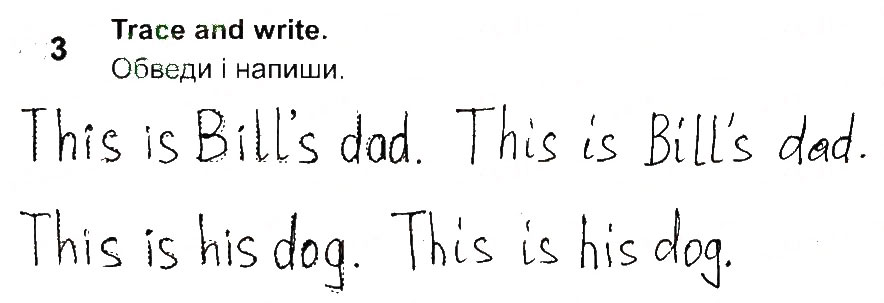 3 Trace and write.
Обведи і напиши.
This is Bill's dad. This is Bill's dad.
This is his dog. This is his dog.